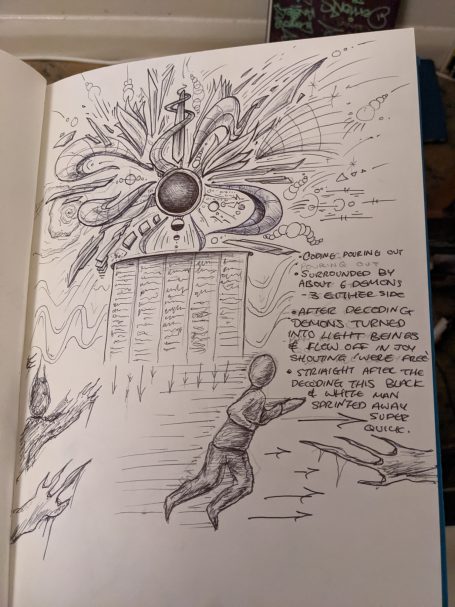 • CODING POURING OUT
POURING OUT
• SURROUNDED BY
ABOUT 6 DEMONS
- 3 EITHER SIDE
• AFTER DECODING
DEMONS TURNED
INTO LIGHT BEINGS
& FLOW OFF IN JOY
SHOUTING 'WERE FREE'
• STRIAIGHT AFTER THE
DECODING THIS BLACK
& WHITE MAN
SPRINTED AWAY
SUPER
QUICK.